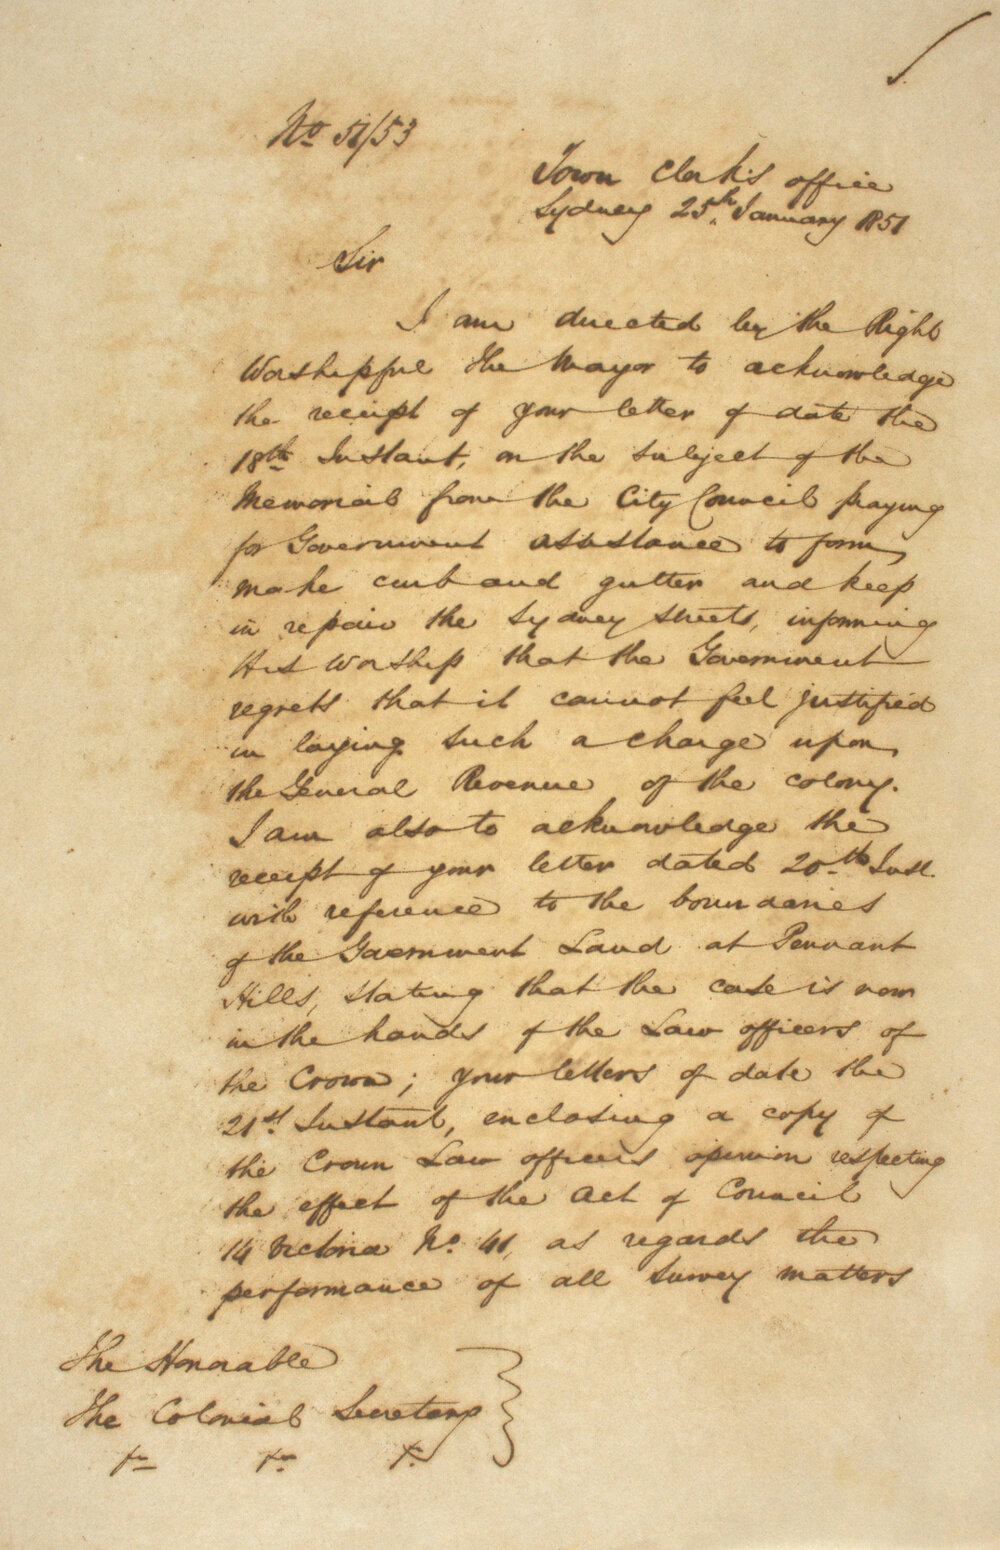 No 51/53
Town Clerk's office
Sydney 25th January 1851
Sir
I am directed by the Right
Worshipful The Mayor to acknowledge
the receipt of your letter of date the
18th Instant, on the subject of the
Memorial from the City Council praying
for Government assistance to form,
make curb and gutter and keep
in repair the Sydney Streets, informing
His Worship that the Government
regrets that it cannot feel justified
in laying such a charge upon
the General Revenue of the colony.
I am also to acknowledge the
receipt of your letter dated 20th Inst.
with reference to the boundaries
of the Government Land at Pennant
Hills, stating that the case is now
in the hands of the Law officers of
the Crown; your letters of date the
21st Instant, enclosing a copy of
the Crown Law officers opinion respecting
the effect of the Act of Council
14 Victoria No. 41, as regards the
performance of all Survey matters
The Honorable
The Colonial Secretary